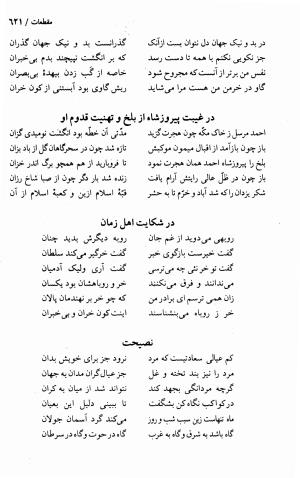 مقطعات / ۶۲۱
در بد و نیک جهان دل نتوان بست ازآنک گذرانست بد و نیک جهان گذران
نیکویی کن تو بهمه تا دست رسد بد هم انگشت بد کسان
نفس من برتر از آنست که مجروح شود خاصه از گپ زدن بیهدهٔ بی‌بصران
گاو در خرمن من هست مرا می‌شاید ریش گاوی بود آبستنی از کون خران
در غیبت پیروزشاه از بلخ و تهنیت قدوم او
احمد مرسل ز خاک مکه چون هجرت گزید مدتی آن خطه بود انگشت نومیدی گزان
باز چون بازآمد از اقبال میمون موکبش تازه شد چون در سحرگاهان گل از باد بزان
بلخ را پیروزشاه احمد همان هجرت نمود تا فروبارید از هم همچو برگ اندر خزان
باز چون در ظل عالی رایتش آرام یافت زنده شد بار دگر چون از صبا شاخ رزان
شکر یزدان را که شد آباد و خرم تا به حشر قبهٔ اسلام ازین و کعبهٔ اسلام از آن
در شکایت اهل زمان
روبهی می‌دوید از غم جان روبه دیگرش بدید چنان
گفت خیرست بازگوی خبر گفت خرگیر می‌کند سلطان
گفت تو خر نئی چه می‌ترسی گفت آری ولیک آدمیان
می‌ندانند و فرق می‌نکنند خر و روباهشان بود یکسان
زان همی ترسم ای برادر من که چو خر بر نهندمان پالان
خر ز روباه می‌بنشناسند اینت کون خران و بی‌خبران
نصیحت
کم عیالی سعادتیست که مرد نرود جز برای خویش بدان
مرد را نیز بند تخته و غل جز عیال گران مدان به جهان
گرچه مردانگی بجهد کند نتواند شد از میان به کران
در کواکب نگاه کن بشگفت تا ببینی دلیل این بعیان
ماه تنهاست زین سبب شب و روز می‌کند گرد آسمان جولان
گاه باشد به شرق و گاه به غرب گاه در حوت و گاه در سرطان